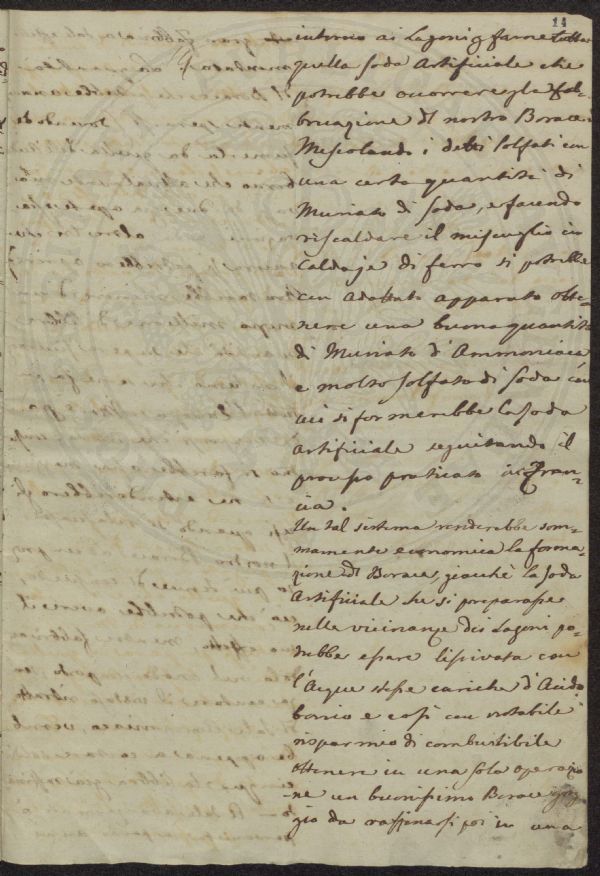 14
intorno ai Lagoni p farne tutta
quella soda Artificiale che
potrebbe occorrere p la fab-
bricazione dl nostro Borace.
Mescolando i detti Solfati con
una certa quantità di
Muriato di soda, e facendo
riscaldare il miscuglio in
Caldaje di ferro si potrebbe
con adattato apparato otte-
nere una buona quantità
di Muriato d'Ammoniaca
e molto solfato di soda con
cui si formerebbe la soda
artificiale seguitando il
processo praticato in Fran-
cia.
Un tal sistema renderebbe som-
mamente economica la forma-
zione dl Borace, giacchè la soda
Artificiale che si preparasse
nelle vicinanze dei Lagoni po-
trebbe essere lisivata con
l'Acque stesse cariche d'Acido
borico e così con notabile
risparmio di combustibile
ottenere in una sola operazio-
ne un buonissimo Borace greg-
gio da raffinarsi poi in una